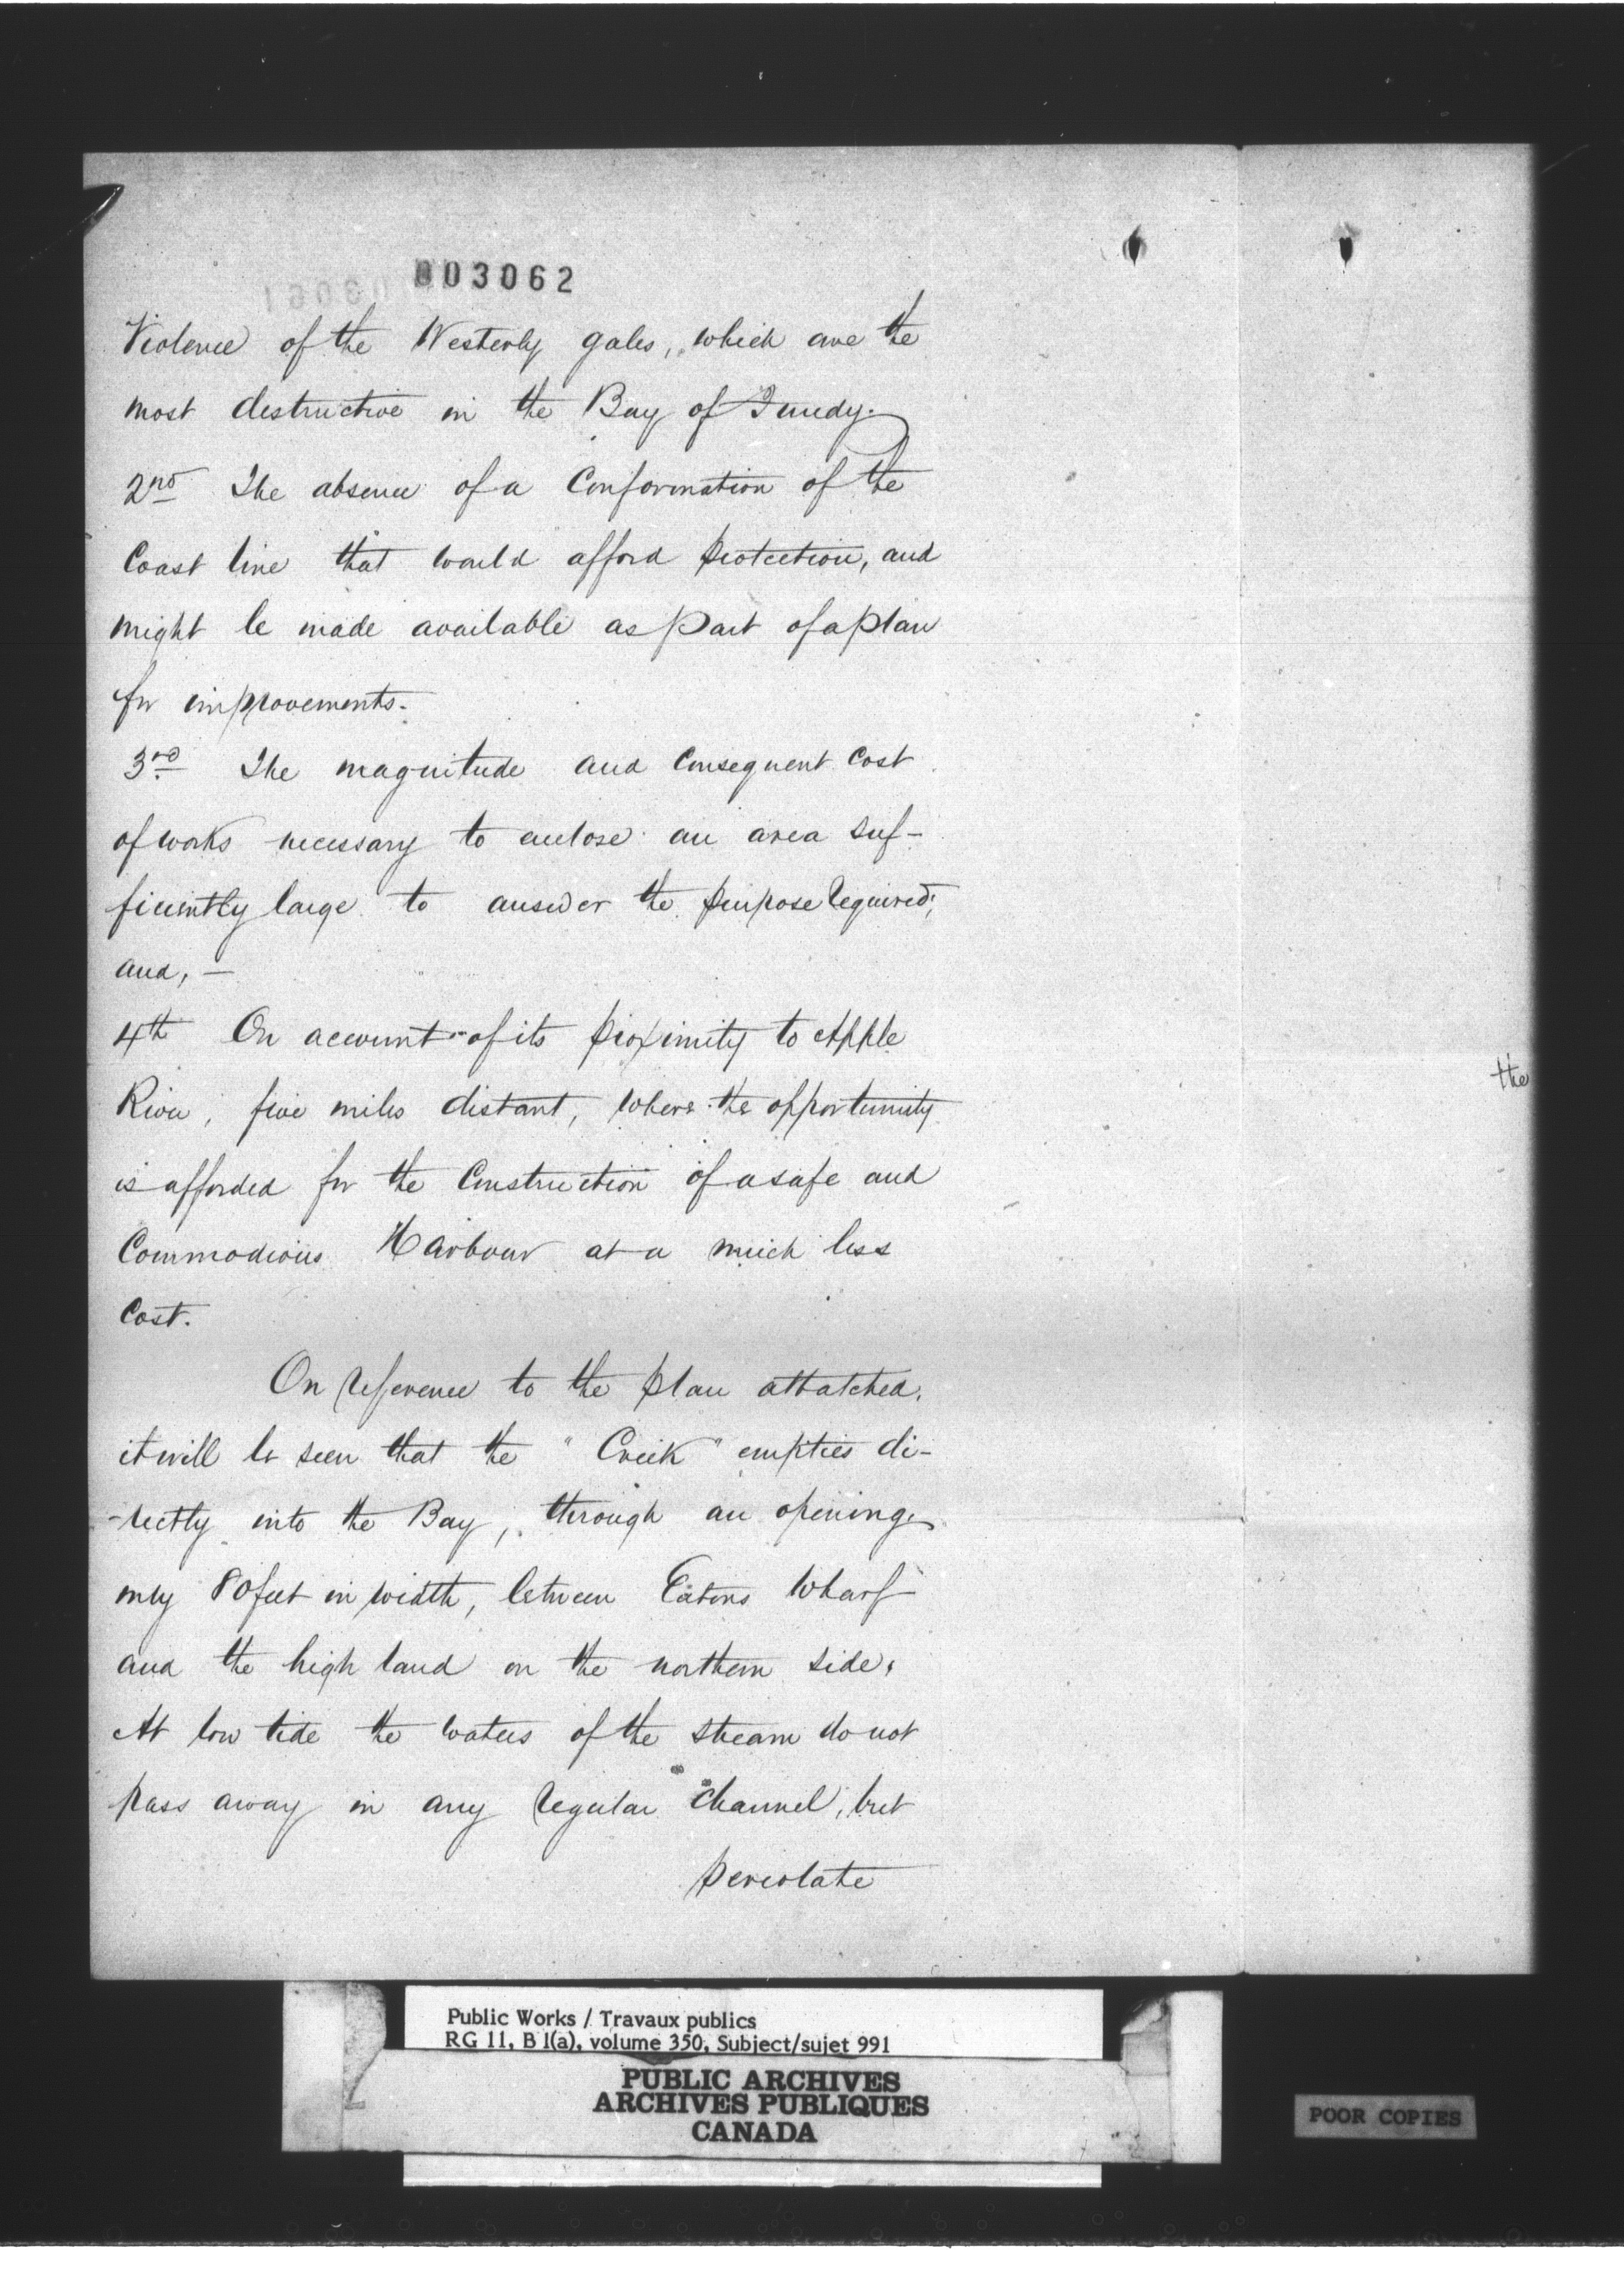 003062
Violence of the Westerly gales, which are the
most destructive in the Bay of Fundy.
2nd The absence of a Conformation of the
Coast line that would afford protection, and
might be made available as part of a plan
for improvements.
3rd The magnitude and Consequent Cost
of works necessary to enclose an area suf-
ficiently large to answer the purpose required;
and, —
4th On account of its proximity to Apple
River, five miles distant, where the opportunity
is afforded for the Construction of a safe and
Commodious Harbour at a much less
Cost.
the
On reference to the plan attatched,
it will be seen that the "Creek" empties di-
-rectly into the Bay, through an opening
only 80 feet in width, between Eatons Wharf
and the high land on the northern side.
At low tide the waters of the stream do not
pass away in any regular Channel, but
percolate
Public Works / Travaux publics
RG 11, B 1(a), volume 350, Subject/sujet 991
PUBLIC ARCHIVES
ARCHIVES PUBLIQUES
CANADA
POOR COPIES